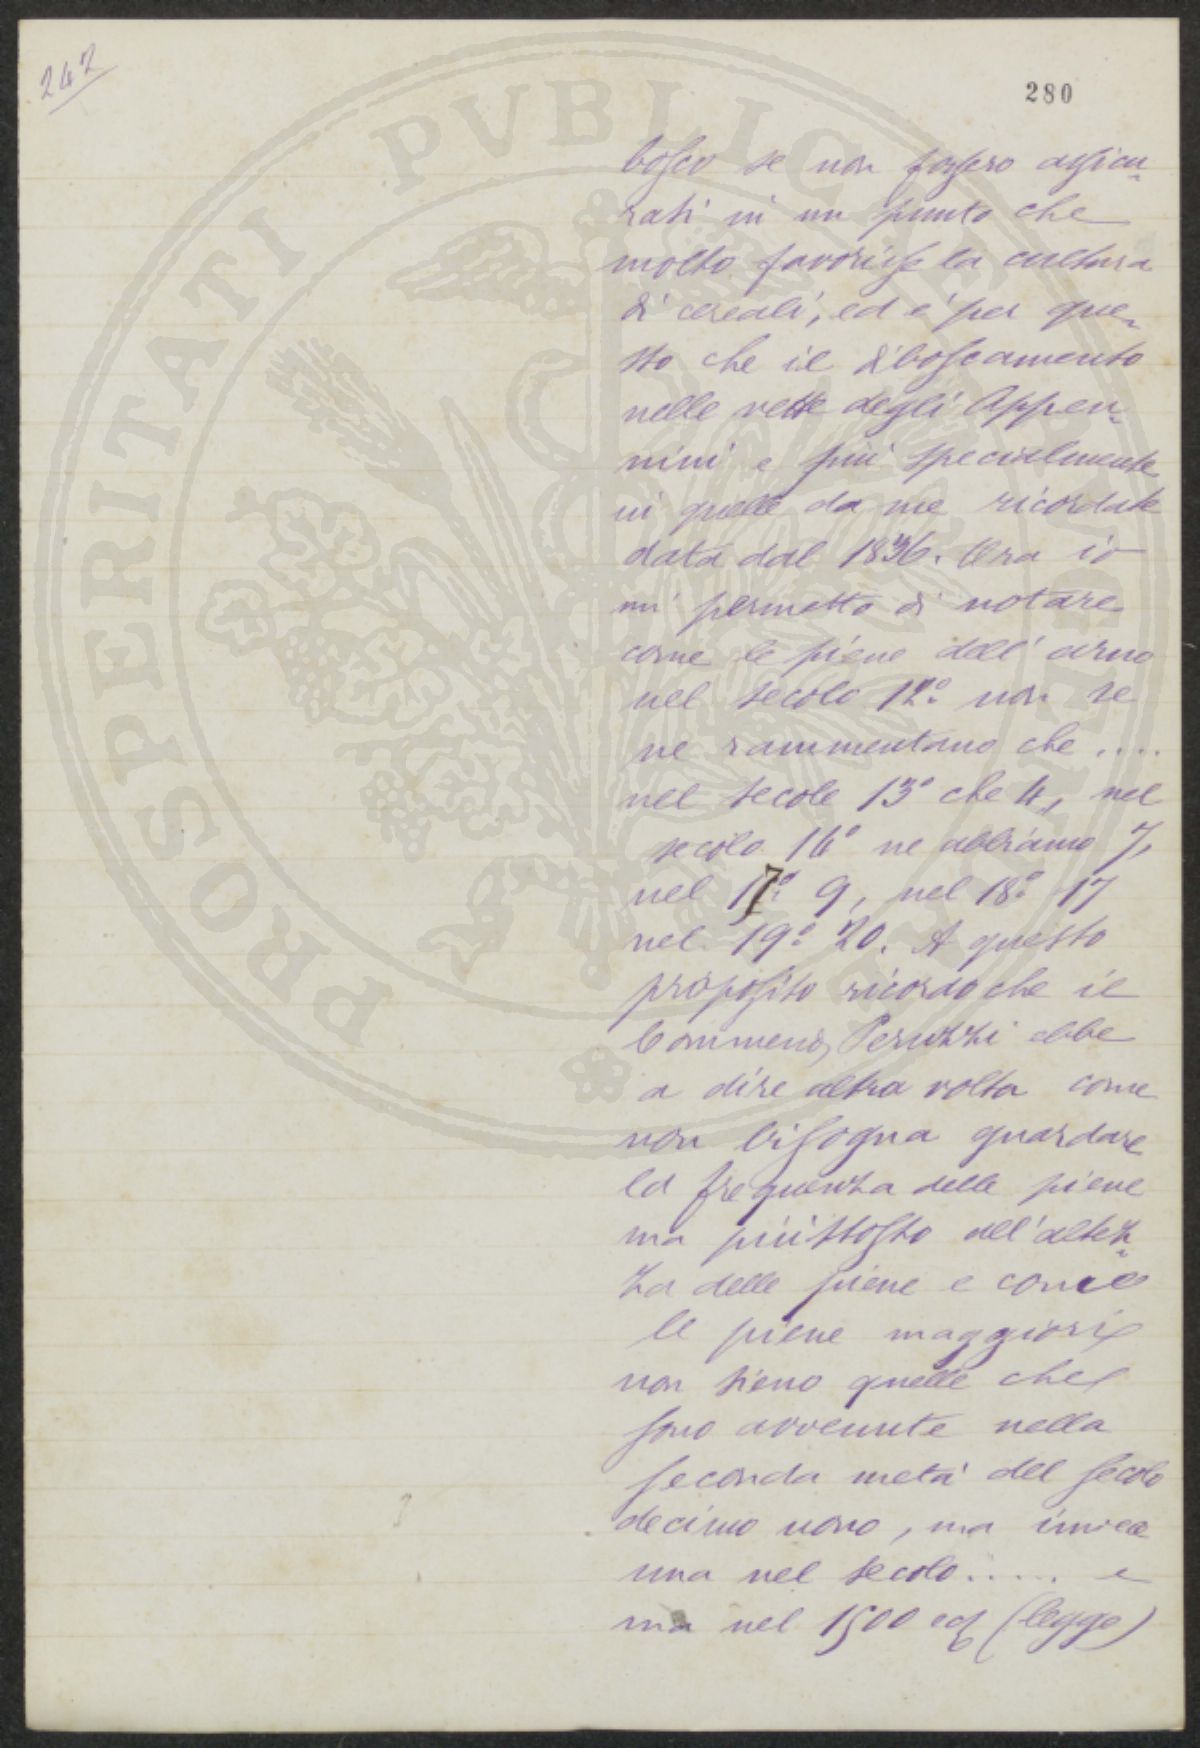 242
280
bosco se non fossero assicu-
rati in un punto che
molto favorisce la cultura
di cereali, ed è per que-
sto che il diboscamento
nelle vette degli Appen-
nini e più specialmente
in quelle da me ricordate
data dal 1836. Ora io
mi permetto di notare
come le piene dell'arno
nel secolo 12º non se
ne rammentano che ....
nel secolo 13º che 4, nel
secolo 16º ne abbiamo 7,
nel 17º 9, nel 18º 17
nel 19º 20. A questo
proposito ricordo che il
Commend, Peruzzi ebbe
a dire altra volta come
non bisogna guardare
la frequenza delle piene
ma piuttosto all'altez-
za delle piene e come
le piene maggiori
non sieno quelle che
sono avvenute nella
seconda metà del secolo
decimo nono, ma invece
una nel secolo ..... e
una nel 1500 (legge)
PROSPERITATI PVBLICAE